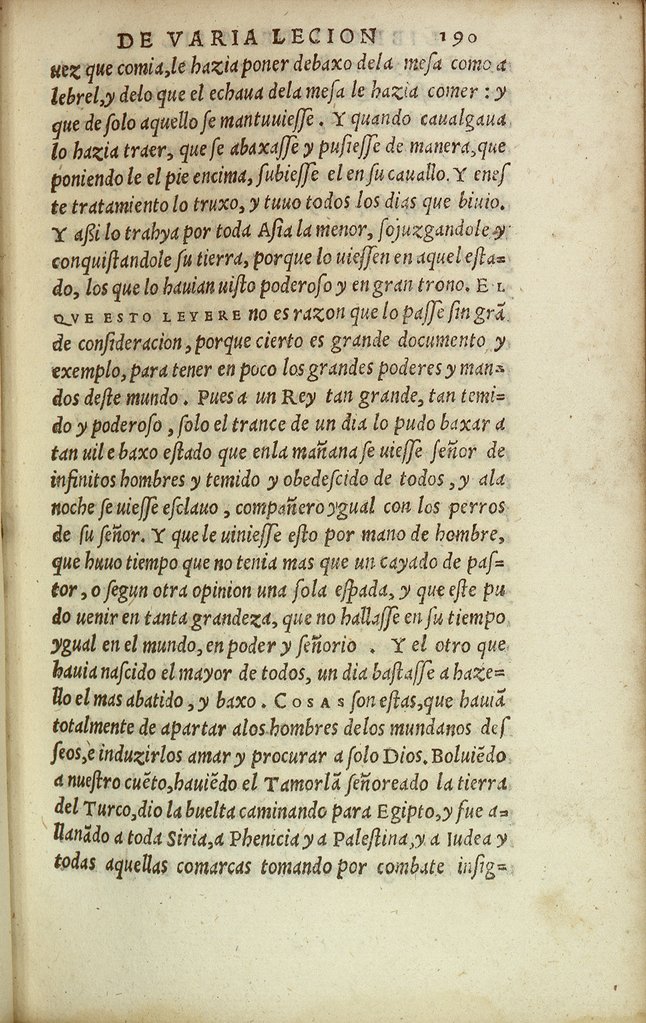 DE VARIA LECION 190
uez que comia, le hazia poner debaxo dela mesa como a
lebrel, y delo que el echaua dela mesa le hazia comer : y
que de solo aquello se mantuuiesse . Y quando caualgaua
lo hazia traer, que se abaxasse y pusiesse de manera, que
poniendo le el pie encima, subiesse el en su cauallo. Y enes
te tratamiento lo truxo, y tuuo todos los dias que biuio.
Y aßi lo trahya por toda Asia la menor, sojuzgandole y
conquistandole su tierra, porque lo uiessen en aquel esta=
do, los que lo hauian uisto poderoso y en gran trono. EL
QVE ESTO LEYERE no es razon que lo passe sin grã
de consideracion, porque cierto es grande documento y
exemplo, para tener en poco los grandes poderes y man=
dos deste mundo . Pues a un Rey tan grande, tan temi=
do y poderoso , solo el trance de un dia lo pudo baxar a
tan uil e baxo estado que enla mañana se uiesse señor de
infinitos hombres y temido y obedescido de todos , y ala
noche se uiesse esclauo , compañero ygual con los perros
de su señor. Y que le uiniesse esto por mano de hombre,
que huuo tiempo que no tenia mas que un cayado de pas=
tor , o segun otra opinion una sola espada, y que este pu
do uenir en tanta grandeza, que no hallasse en su tiempo
ygual en el mundo, en poder y señorio . Y el otro que
hauia nascido el mayor de todos, un dia bastasse a haze=
llo el mas abatido , y baxo . COSAS son estas, que hauiã
totalmente de apartar alos hombres delos mundanos des
seos, e induzirlos amar y procurar a solo Dios. Boluiẽdo
a nuestro cuẽto, hauiẽdo el Tamorlã señoreado la tierra
del Turco, dio la buelta caminando para Egipto, y fue a=
llanãdo a toda Siria, a Phenicia y a Palestina, y a Iudea y
todas aquellas comarcas tomando por combate insig=